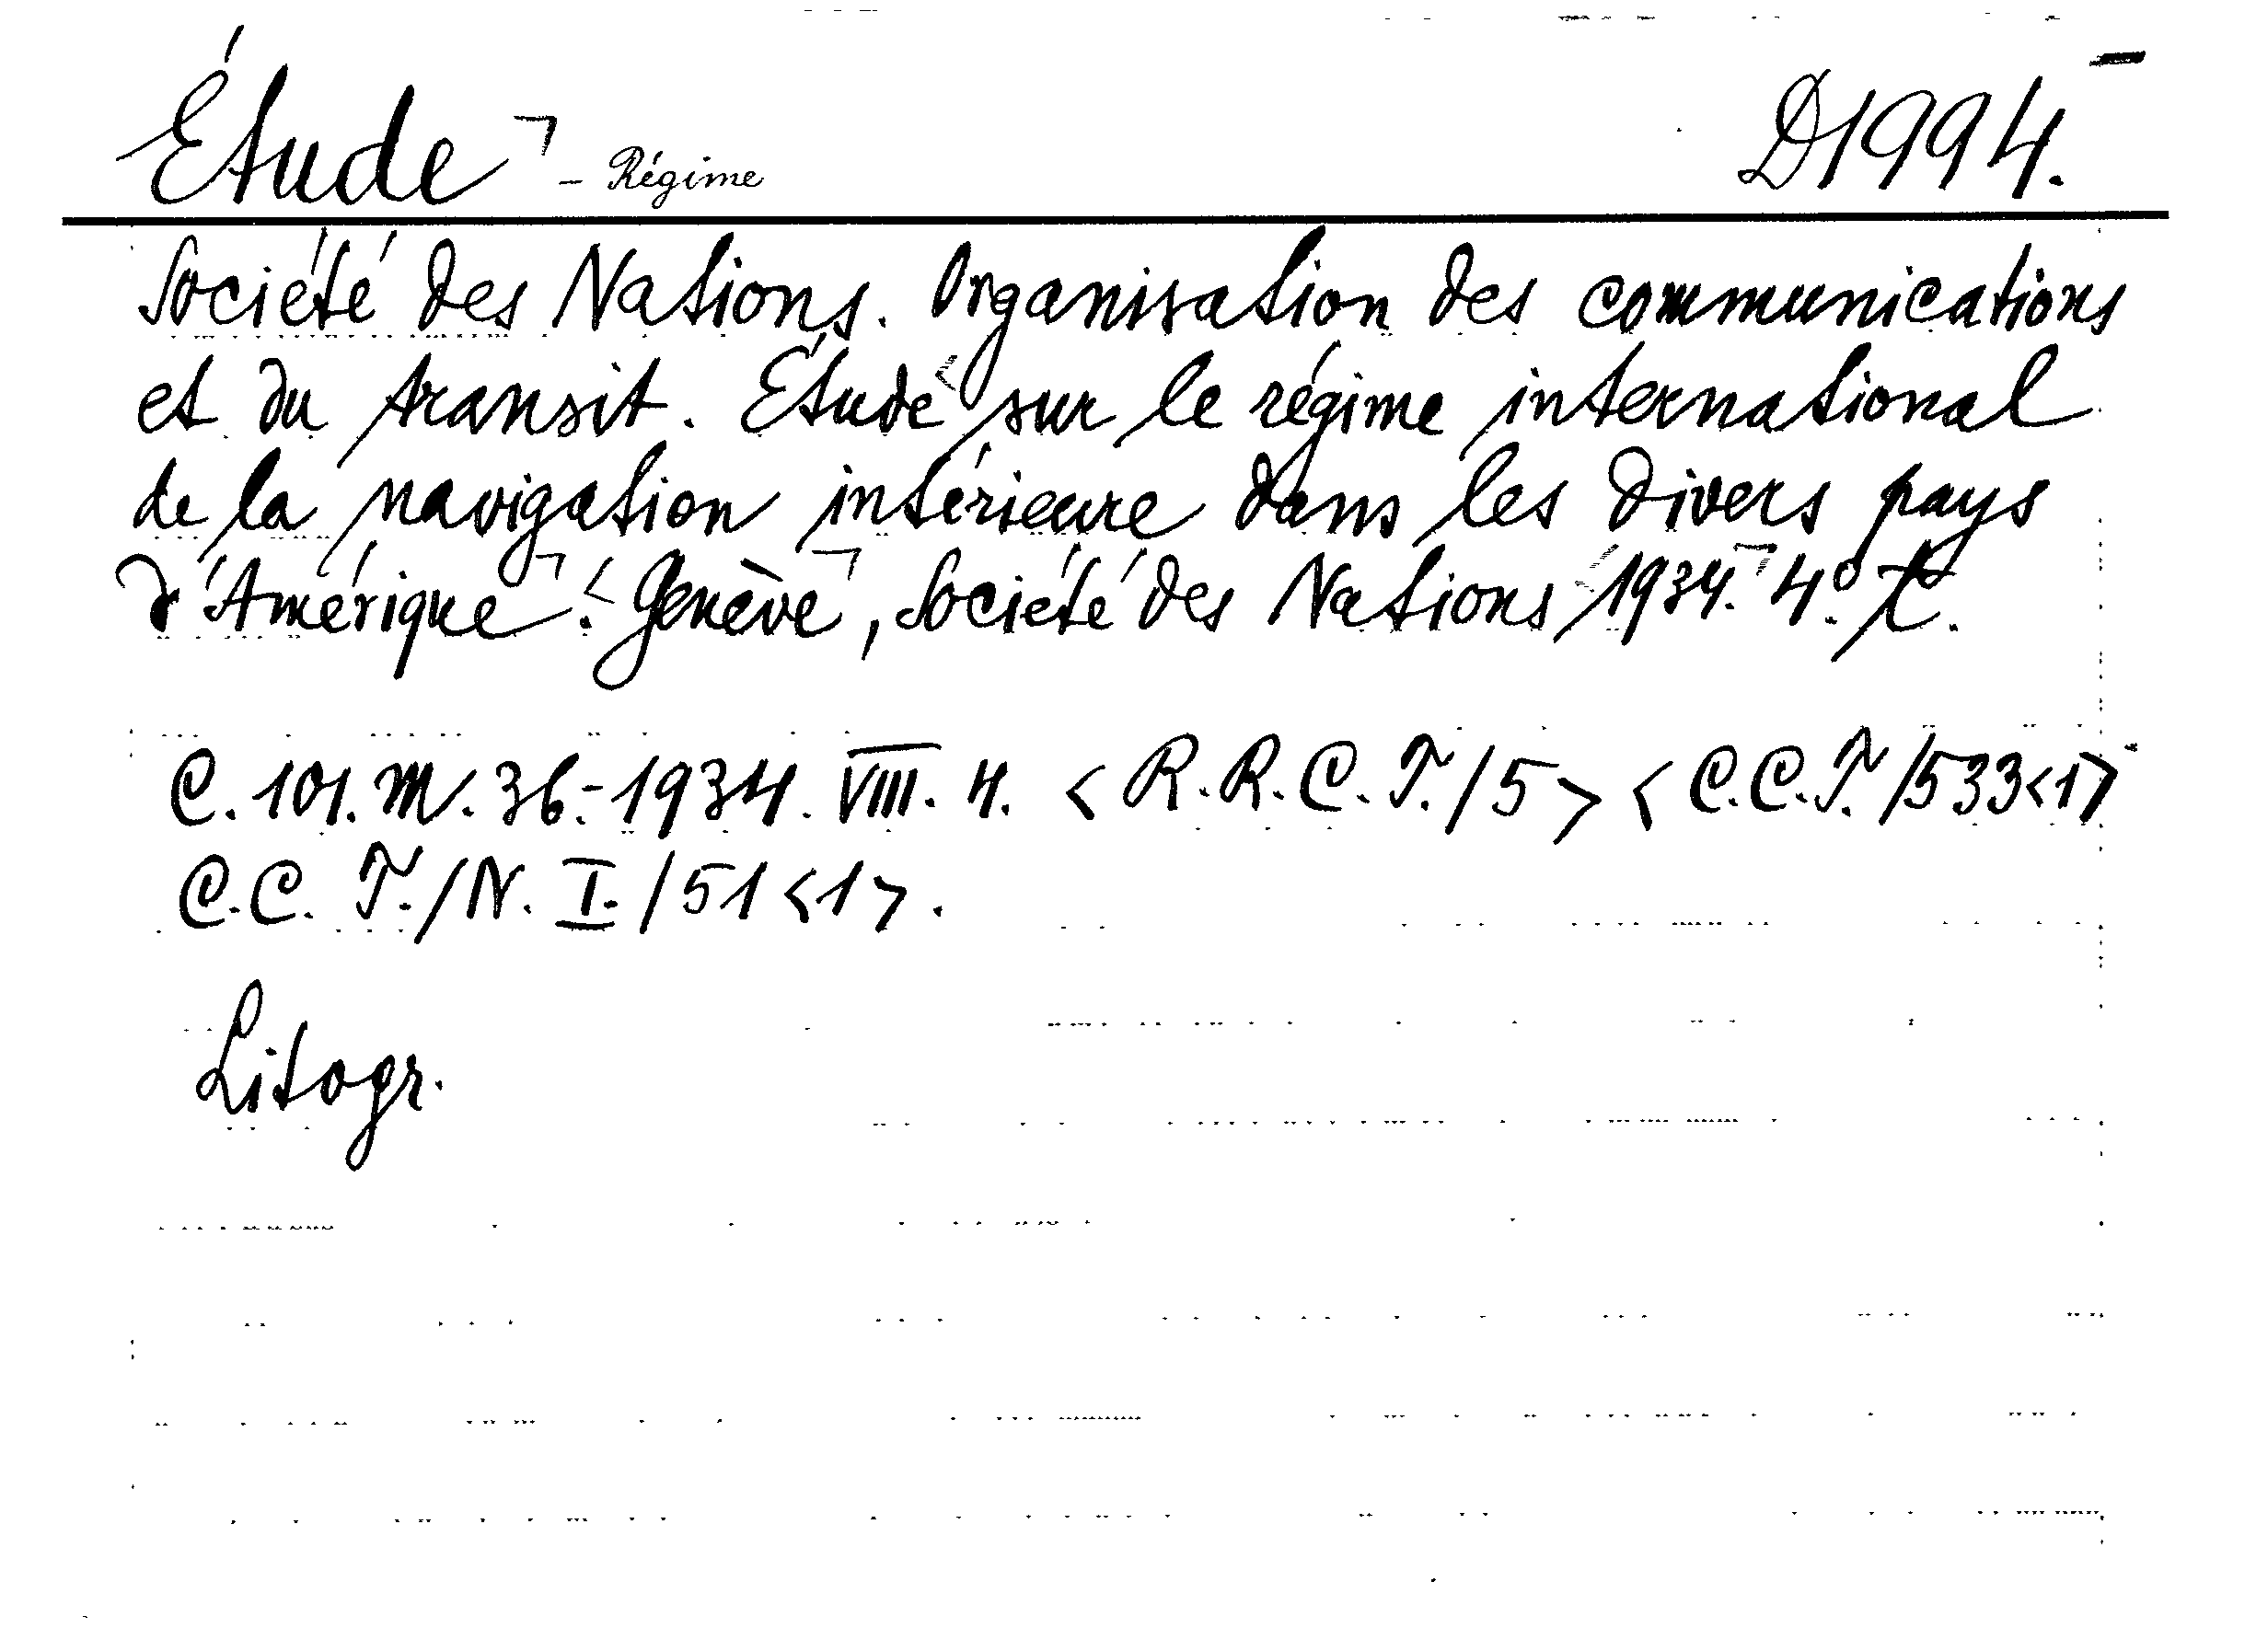 Étude ¬ - Régime D1994.
Société des Nations. Organisation des communications
et du transit. Étude sur le régime international
de la navigation intérieure dans les divers pays
d'Amérique. Genève, Société des Nations 1934. 4º.
C. 101. M. 36.-1934. VIII. 4. <R.R.C.T./5> <C.C.T./533<1>
C.C.T./N.I./51<1>.
Litogr.